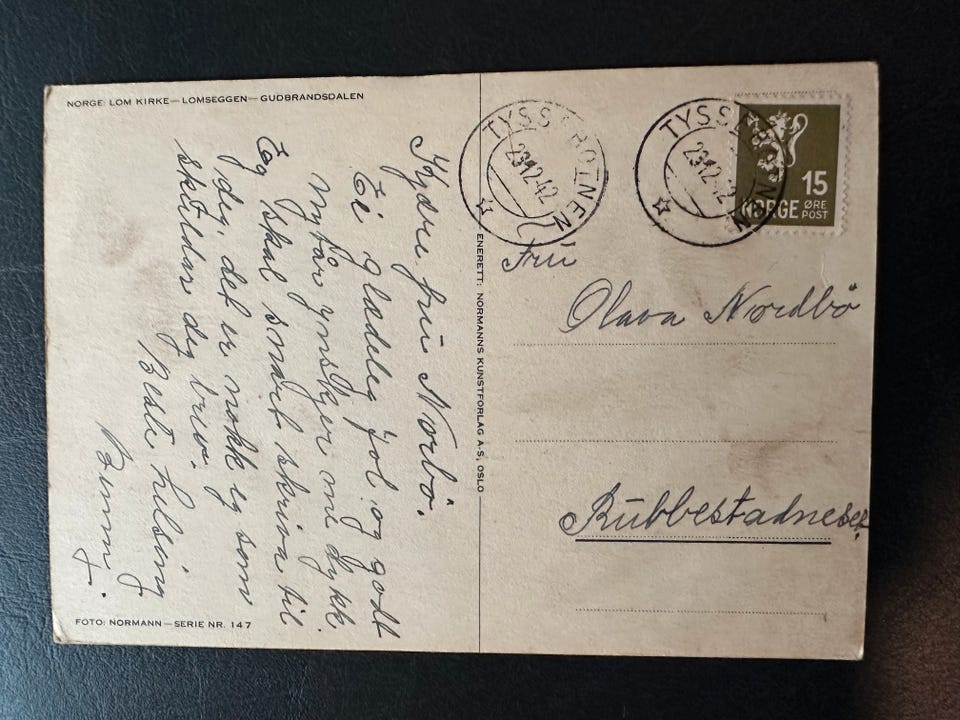 NORGE: LOM KIRKE—LOMSEGGEN—GUDBRANDSDALEN
Kjære frú Norbö.
Ei gladeleg jol og godt
nyår ynskjer me dykk.
Eg skal snart skriva til
deg, det er nokk eg som
skuldar deg brev.
Beste helsing
FOTO: NORMANN—SERIE NR. 147
ENERETT: NORMANNS KUNSTFORLAG A-S, OSLO
TYSSEBOTNEN
23.12.42
TYSSEBOTNEN
23.12.42
15
NORGE ØRE
POST
Frú
Olava Nordbö
Rúbbestadneset.